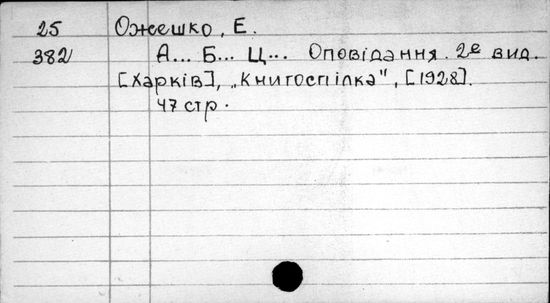 25 Ожешко, Е.
382 А... Б... Ц... Оповідання. 2е вид.
[Харків], „Книгоспілка", [1928].
47 стр.